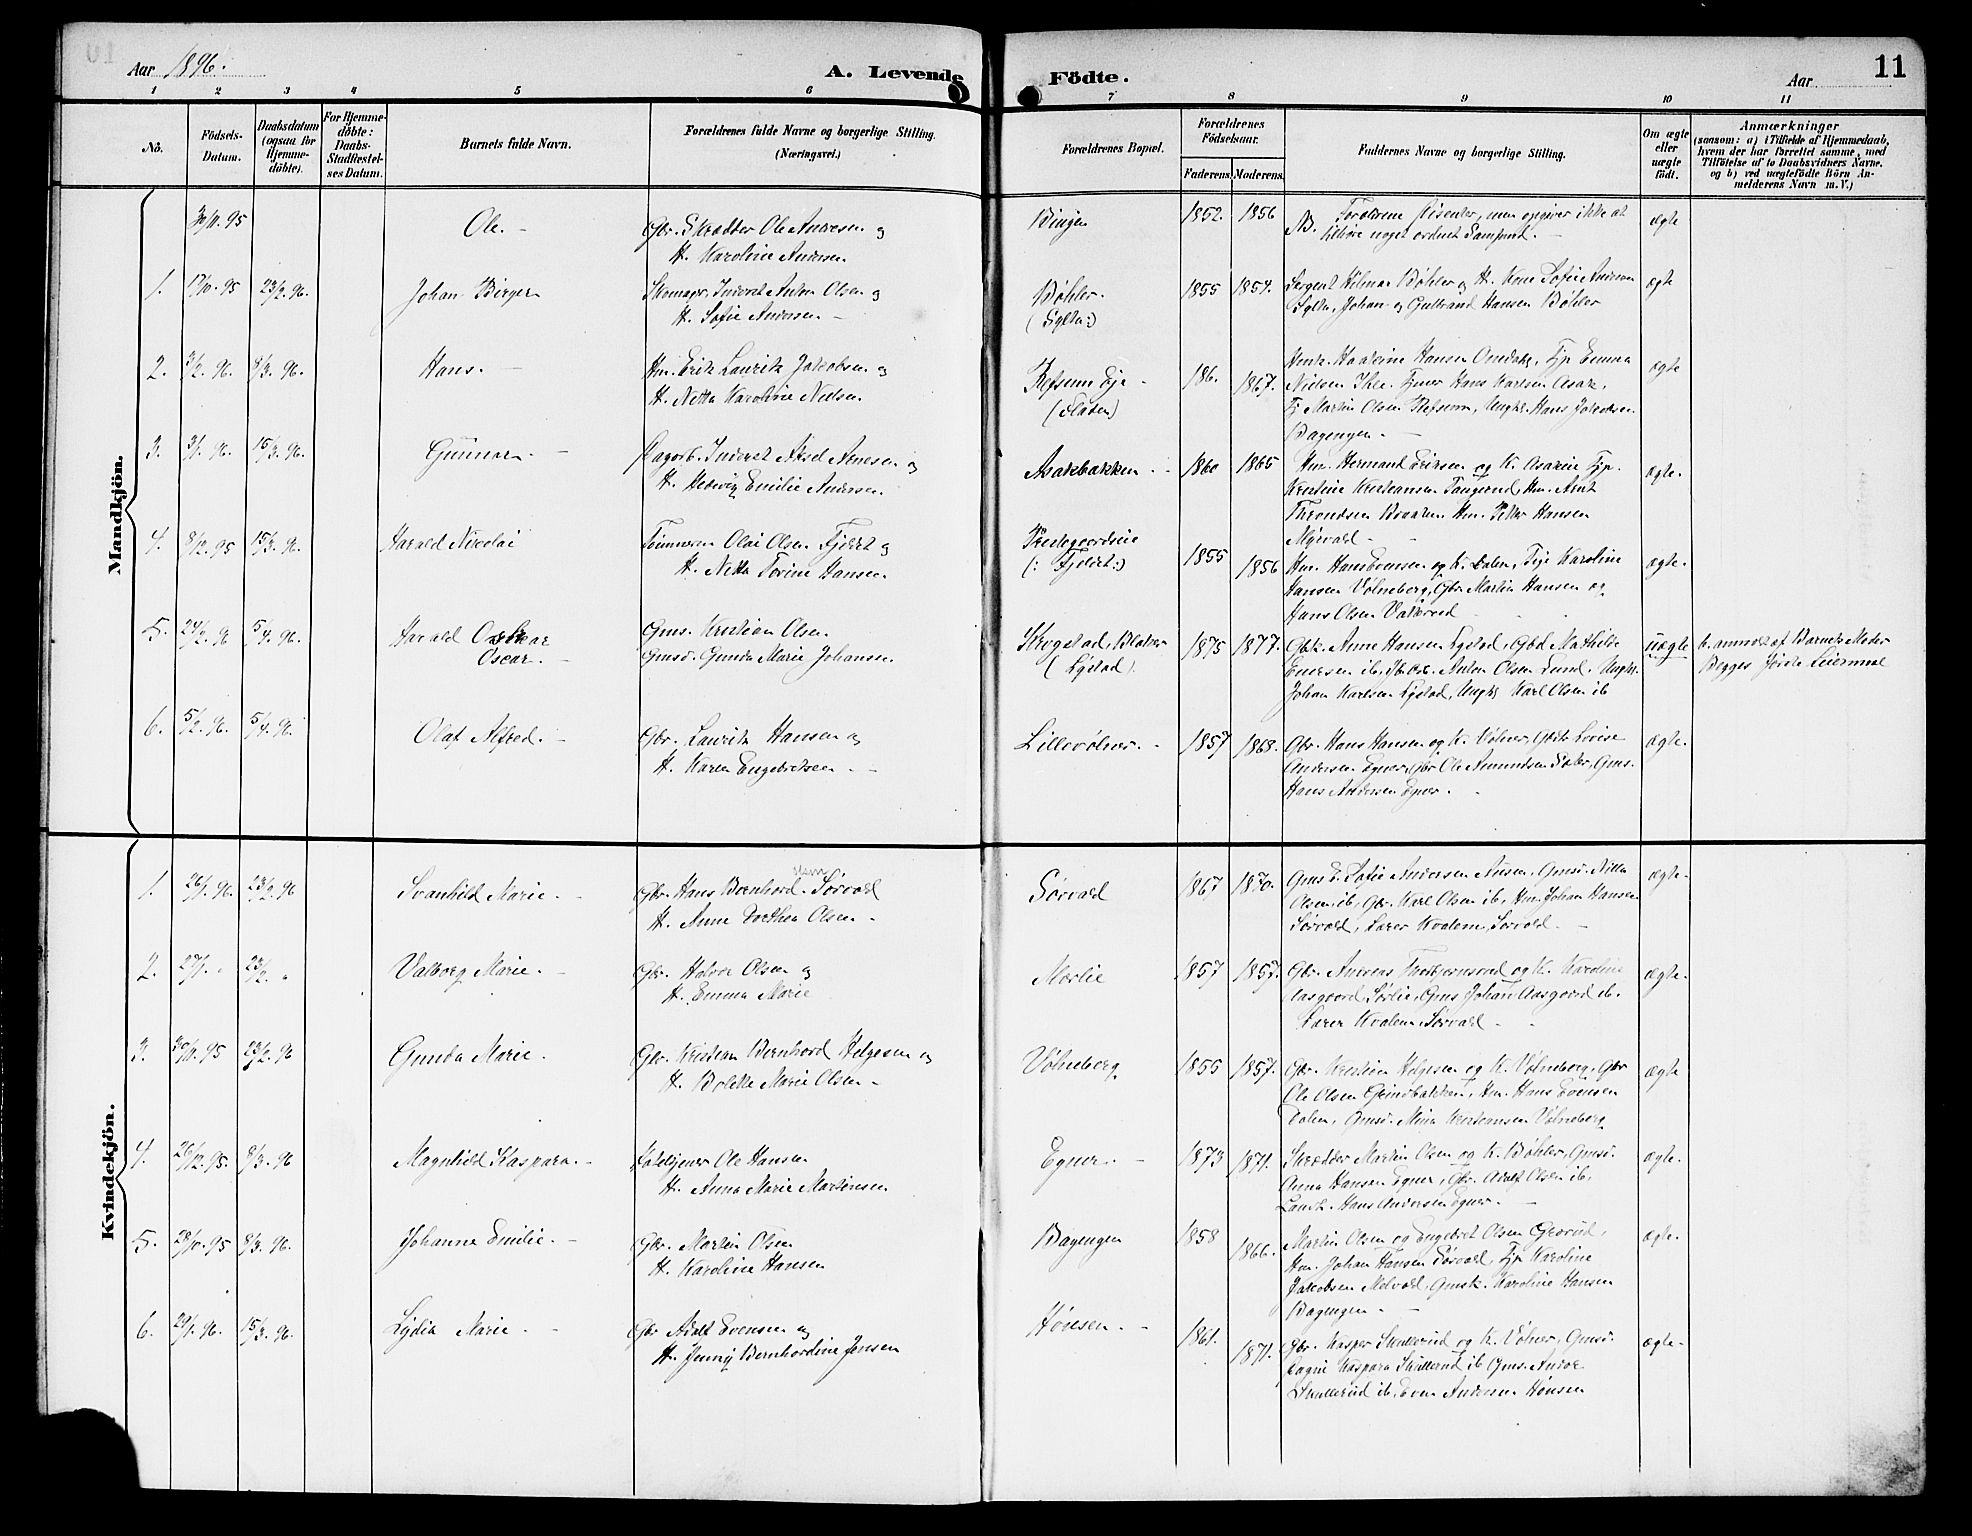 Aar 1896.
A. Levende Födte.
Aar
11
1 2 3 4 5 6 7 8 9 10 11
No.
Födsels-
Datum.
Daabsdatum
(ogsaa for
Hjemme-
döbte).
For Hjemme-
döbte:
Daabs-
Stadfæstel-
ses Datum.
Barnets fulde Navn.
Forældrenes fulde Navne og borgerlige Stilling.
(Næringsvei.)
Forældrenes Bopæl.
Forældrenes
Födselsaar.
Faderens. Moderens.
Faddernes Navne og borgerlige Stilling.
Om ægte
eller
uægte
födt.
Anmærkninger
(saasom: a) i Tilfælde af Hjemmedaab,
hvem der har forrettet samme, med
Tilföielse af to Daabsvidners Navne.
og b) ved uægtefödte Börn An-
melderens Navn m. V.)
Mandkjön.
30/11.95 Ole. Gbr. Skrædder Ole Andresen og
H. Karoline Andersen
Bingen 1852. 1856 NB. Forældrene Dissenter, men opgiver ikke at
tilhøre noget ordnet Samfund. ægte
1. 17/10.95 23/2.96. Johan Birger Skomagr. Inderst Anton Olsen og
H. Sofie Andersen
Bøhler.
(Sylta:)
1855 1854. Sergent Hilmar Bøhler og H. Kone Sofie Andersen
Sylta, Johan og Gulbrand Hansen Bøhler ægte
2. 3/2.96. 8/3.96. Hans. Hm. Erik Lauritz Jakobsen og
H. Netta Karoline Nielsen
Refsum Eje
(Flaten)
186. 1867. Hansen Fjp Emma
Nielsen Ihle. Tjener Hans Karlsen Asak.
Tj Martin Olsen Refsum, Ungk. Hans Jakobsen
Bagengen. ægte
3. 3/1.96. 15/3.96. Gunnar. Dagarb. Inderst Aksel Arnesen og
H. Hedvig Emilie Andersen.
Asakbakken 1860 1865 Hm. Hermand Eriksen og K. Asakeie Fjp.
Kristine Kristiansen Tangerud, Hm. Arnt
Throndsen Hm. Petter Hansen
ægte.
4. 8/12.95 15/3.96. Harald Nicolai Tømmerm Olai Olsen Fjeldet og
H. Netta Torine Hansen
Prestegaardseie
(: Fjeldet:)
1855 1856 Hm. Hans Evensen og K. Dalen, Pige Karoline
Hansen Vølneberg, Gbr. Martin Hansen og
Hans Olsen ægte.
5. 24/2.96 5/4.96. Harald Oskar
Oscar.
Gms. Kristian Olsen.
Gmsd. Gunda Marie Johansen.
Skregstad, Blaker
(Lystad).
1875 1877. Gbk. Anne Hansen Lystad, Gbd. Mathilde
Eriksen ib, Anton Olsen Lund. Ungk.
Johan Karlsen Lystad, Ungk. Karl Olsen ib
uægte b. anmeldt af Barnets Moder
Begges første Leiermaal
6. 5/2.96. 5/4.96. Olaf Alfred. Gbr. Lauritz Hansen og
H. Karen Engebretsen
Lillevølner. 1857 1868. Gbr. Hans Hansen og K. Vølner, Lovise
Andersen Egner, Gbr Ole Amundsen Gms.
Hans Andersen Egner. ægte.
Kvindekjön.
1. 26/1.96. 23/2.96 Svanhild Marie. Gbr. Hans Bernhard Sørvald
H. Anne Dorthea Olsen
Sørvald 1867 1870. Sofie Andersen Gmsd. Nilla
Olsen ib, Gbr. Karl Olsen ib, Hm. Johan Hansen
Sørvald, Lærer Kvalem, Sørvald. ægte.
2. 27/1. " 23/2. " Valborg Marie. Gbr. Halvor Olsen og
H. Emma Marie
Mørlie 1857 1857. Gbr. Andreas Thorbjørnsrud og K. Karoline
Aasgaard Sørlie, Gms Johan Aasgaard ib.
Lærer Kvalem Sørvald ægte.
3. 30/11.95 23/2.96 Gunda Marie. Gbr. Kristian Bernhard Helgesen og
H. Bolette Marie Olsen
Vølneberg 1855 1857. Gbr. Kristian Helgesen og K. Vølneberg, Gbr
Ole Olsen Grindbakken, Hm. Hans Evensen
Dalen, Gmsd. Mina Kristiansen Vølneberg ægte
4. 26/12.95. 8/3.96 Magnhild Kaspara. Ole Hansen
H. Anna Marie Martinsen
Egner. 1873 1871. Skrædder Martin Olsen og K. Bøhler, Gmsd.
Anna Hansen Egner, Gbr. Adolf Olsen ib,
Landh. Hans Andersen Egner. ægte.
5. 28/10.95 8/3.96. Johanne Emilie. Gbr. Martin Olsen
H. Karoline Hansen
Bagengen 1858 1866. Martin Olsen og Engebret Olsen Grorud,
Hm. Johan Hansen Sørvald, Fjp Karoline
Jakobsen Melvold, Gmsk. Karoline Hansen
Bagengen. ægte.
6. 29/1.96. 15/3.96. Lydia Marie Gbr Adolf Evensen og
H. Jenny Bernhardine Jensen
Hønsen. 1861. 1871. Gbr. Kasper Skullerud og K. Vølner, Gmsd.
Kaspara Skullerud ib Gms. Andor
Skullerud ib, Even Andersen Hønsen ægte.